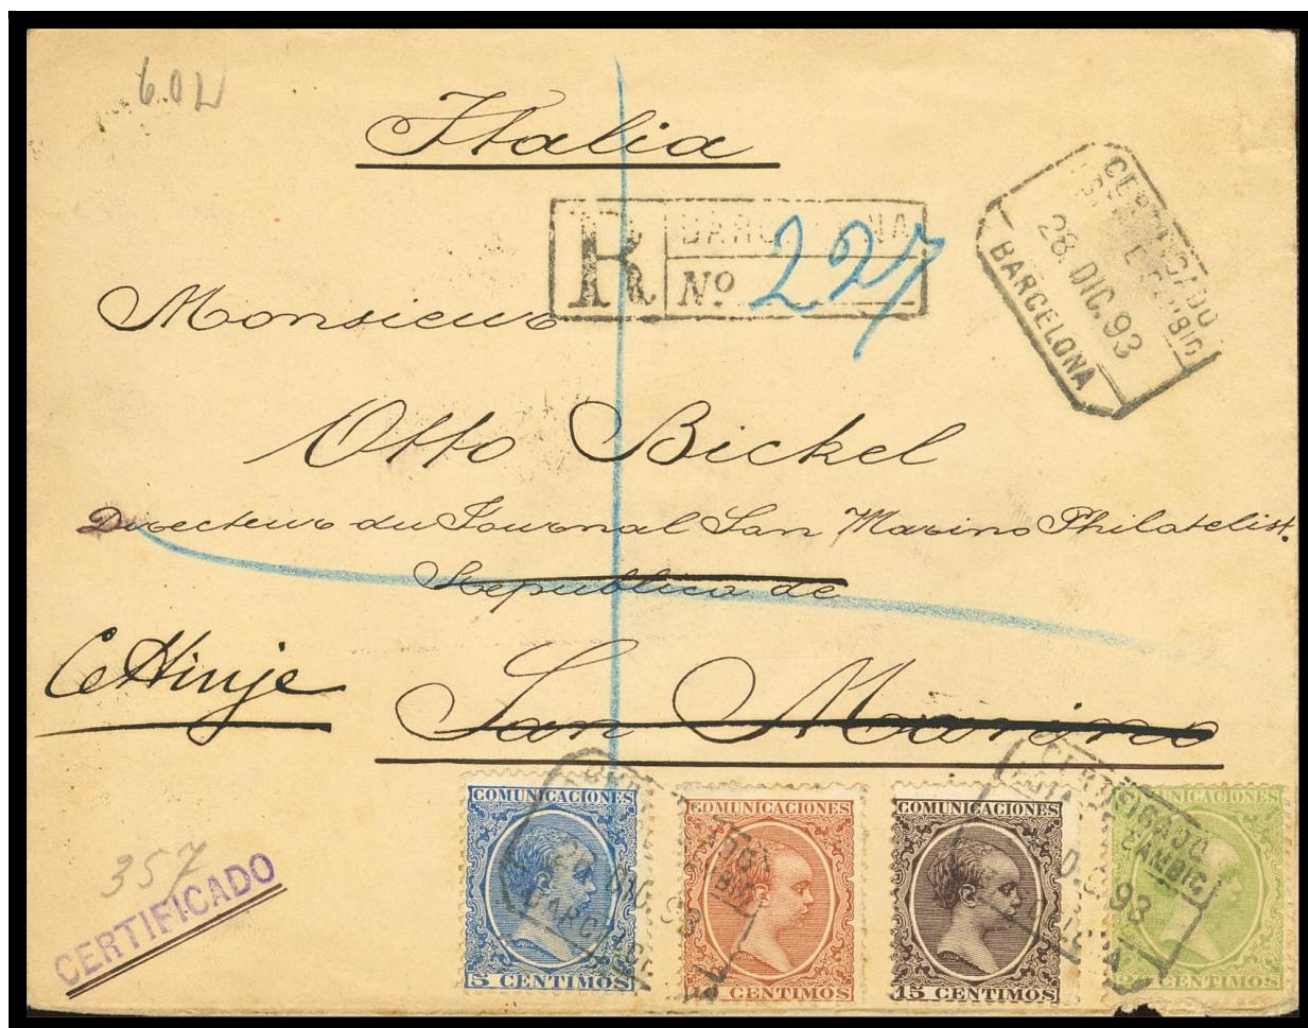 Italia
R BARCELONA
Nº 227
CERTIFICADO
CAMBIO
28 DIC. 93
BARCELONA
Monsieur
Otto Bickel
Directeur du Journal San Marino Philatelist.
Republica de
Cettinje
San Marino
357
CERTIFICADO
COMUNICACIONES
5 CENTIMOS
COMUNICACIONES
CENTIMOS
COMUNICACIONES
15 CENTIMOS
COMUNICACIONES
CENTIMOS
CERTIFICADO
CAMBIO
93